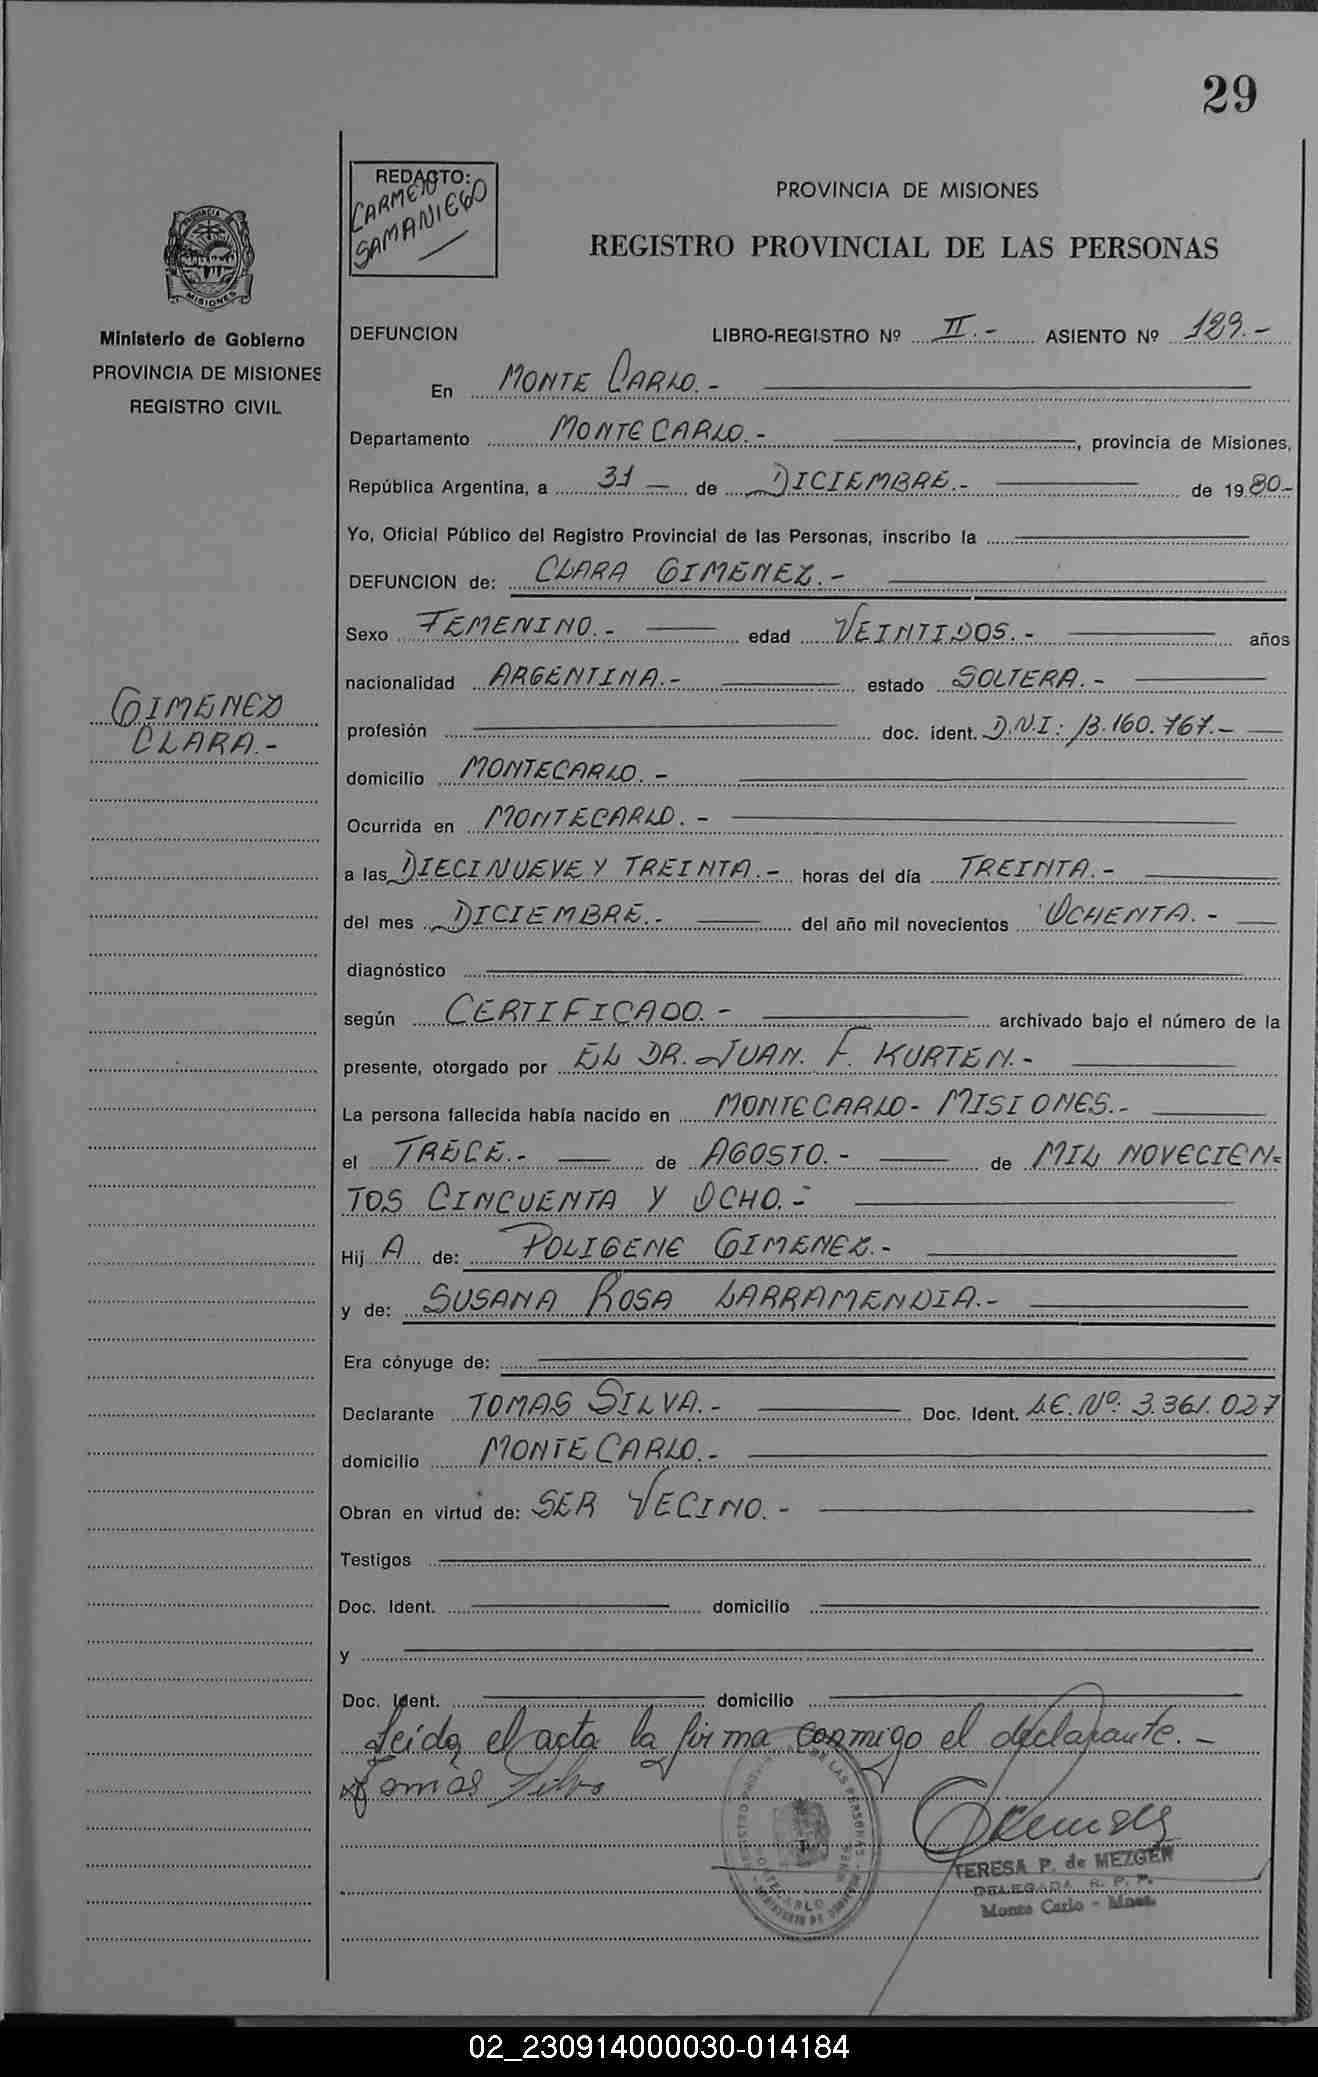 29
REDACTO:
CARMELO
SAMANIEGO
PROVINCIA DE MISIONES
REGISTRO PROVINCIAL DE LAS PERSONAS
Ministerio de Gobierno
PROVINCIA DE MISIONES
REGISTRO CIVIL
GIMENEZ
CLARA.-
DEFUNCION LIBRO-REGISTRO Nº II.- ASIENTO Nº 129.-
En MONTE CARLO.-
Departamento MONTECARLO.- , provincia de Misiones,
República Argentina, a 31 — de DICIEMBRE.- de 1980.-
Yo, Oficial Público del Registro Provincial de las Personas, inscribo la
DEFUNCION de: CLARA GIMENEZ.-
Sexo FEMENINO.- edad VEINTIDOS.- años
nacionalidad ARGENTINA.- estado SOLTERA.-
profesión doc. ident. D.N.I: 13.160.767.-
domicilio MONTECARLO.-
Ocurrida en MONTECARLO.-
a las DIECINUEVE Y TREINTA.- horas del día TREINTA.-
del mes DICIEMBRE.- del año mil novecientos OCHENTA.-
diagnóstico
según CERTIFICADO.- archivado bajo el número de la
presente, otorgado por EL DR. JUAN. F. KURTEN.-
La persona fallecida había nacido en MONTECARLO- MISIONES.-
el TRECE.- de AGOSTO.- de MIL NOVECIEN=
TOS CINCUENTA Y OCHO.-
Hij A de: POLIGENE GIMENEZ.-
y de: SUSANA ROSA LARRAMENDIA.-
Era cónyuge de:
Declarante TOMAS SILVA.- Doc. Ident. L.E. Nº: 3.361.027
domicilio MONTE CARLO.-
Obran en virtud de: SER VECINO.-
Testigos
Doc. Ident. domicilio
y
Doc. Ident. domicilio
Leida el acta la firma conmigo el declarante.-
Tomas Silva
TERESA P. de MEZGER
DELEGADA R. P. P.
Monte Carlo - Mnes.
02_230914000030-014184